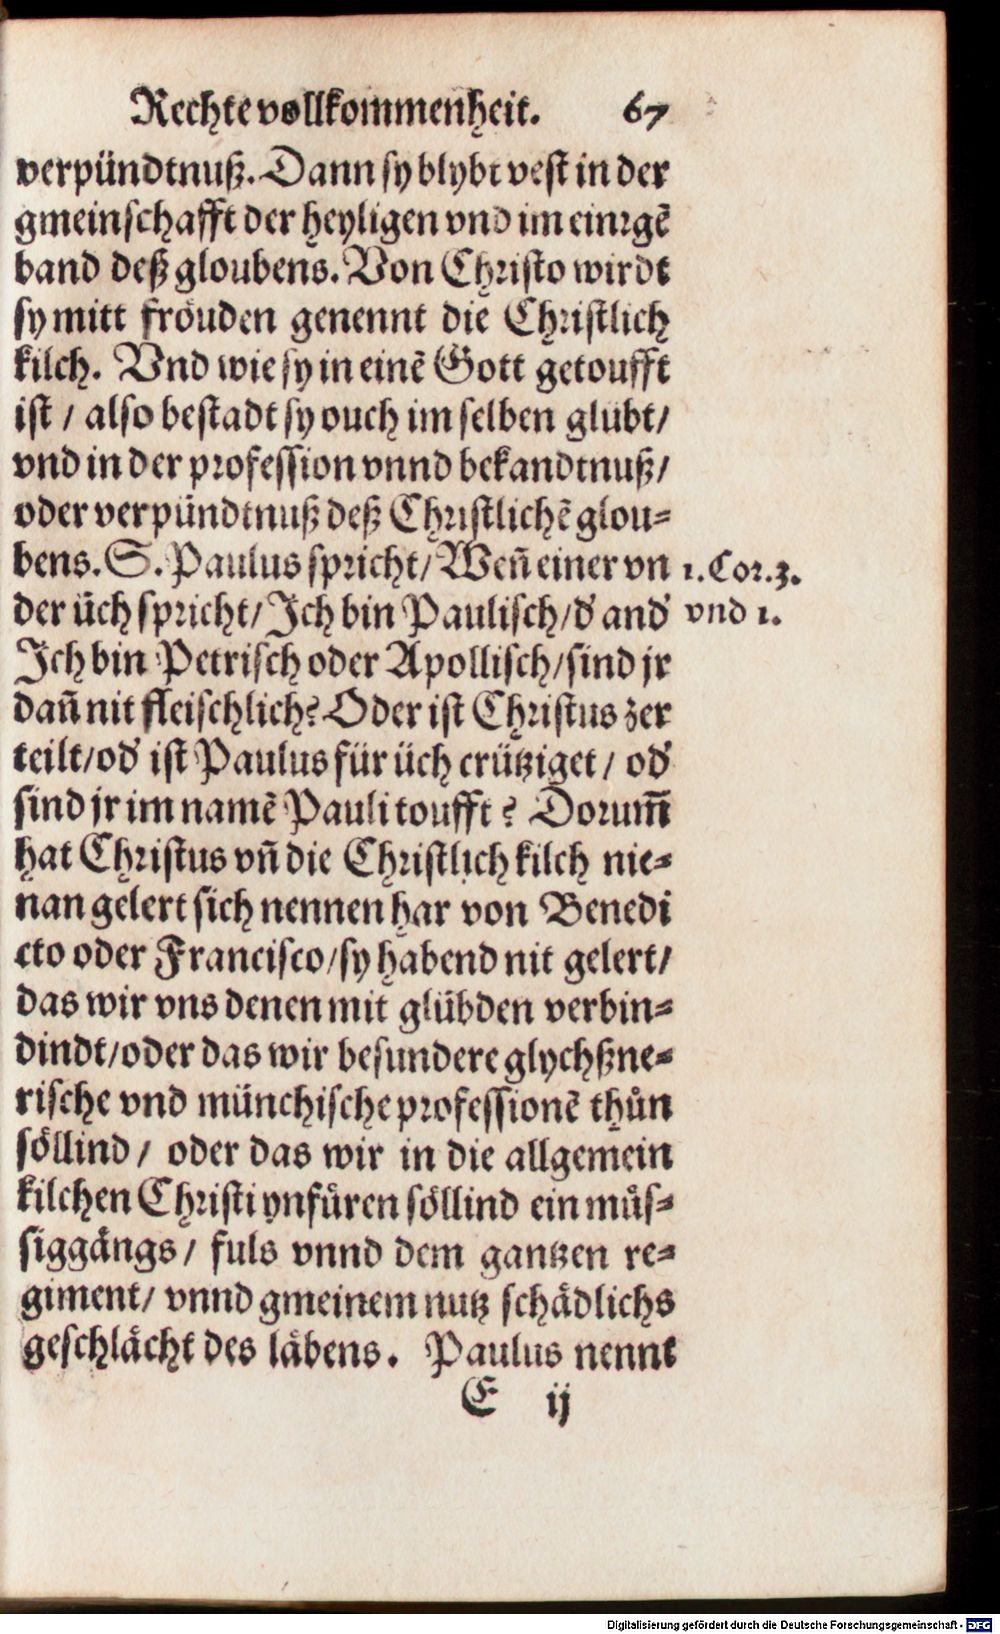 Rechte vollkommenheit. 67
verpündtnuß. Dann sy blybt vest in der
gmeinschafft der heyligen vnd im einigẽ
band deß gloubens. Von Christo wirdt
sy mitt fröuden genennt die Christlich
kilch. Vnd wie sy in einẽ Gott getoufft
ist / also bestadt sy ouch im selben glübt /
vnd in der profession vnnd bekandtnuß /
oder verpündtnuß deß Christlichẽ glou⸗
bens. S. Paulus spricht / Weñ einer vn 1. Cor. 3.
der üch spricht / Ich bin Paulisch / d' and' vnd 1.
Ich bin Petrisch oder Apollisch / sind jr
dañ nit fleischlich? Oder ist Christus zer
teilt / od' ist Paulus für üch crütziget / od'
sind jr im namẽ Pauli toufft? Dorum̃
hat Christus vñ die Christlich kilch nie⸗
nan gelert sich nennen har von Benedi
cto oder Francisco / sy habend nit gelert /
das wir vns denen mit glübden verbin⸗
dindt / oder das wir besundere glychßne⸗
rische vnd münchische professionẽ thůn
söllind / oder das wir in die allgemein
kilchen Christi ynfüren söllind ein můs⸗
siggängs / fuls vnnd dem gantzen re⸗
giment / vnnd gmeinem nutz schädlichs
geschlächt des läbens. Paulus nennt
E ij
Digitalisierung gefördert durch die Deutsche Forschungsgemeinschaft - DFG